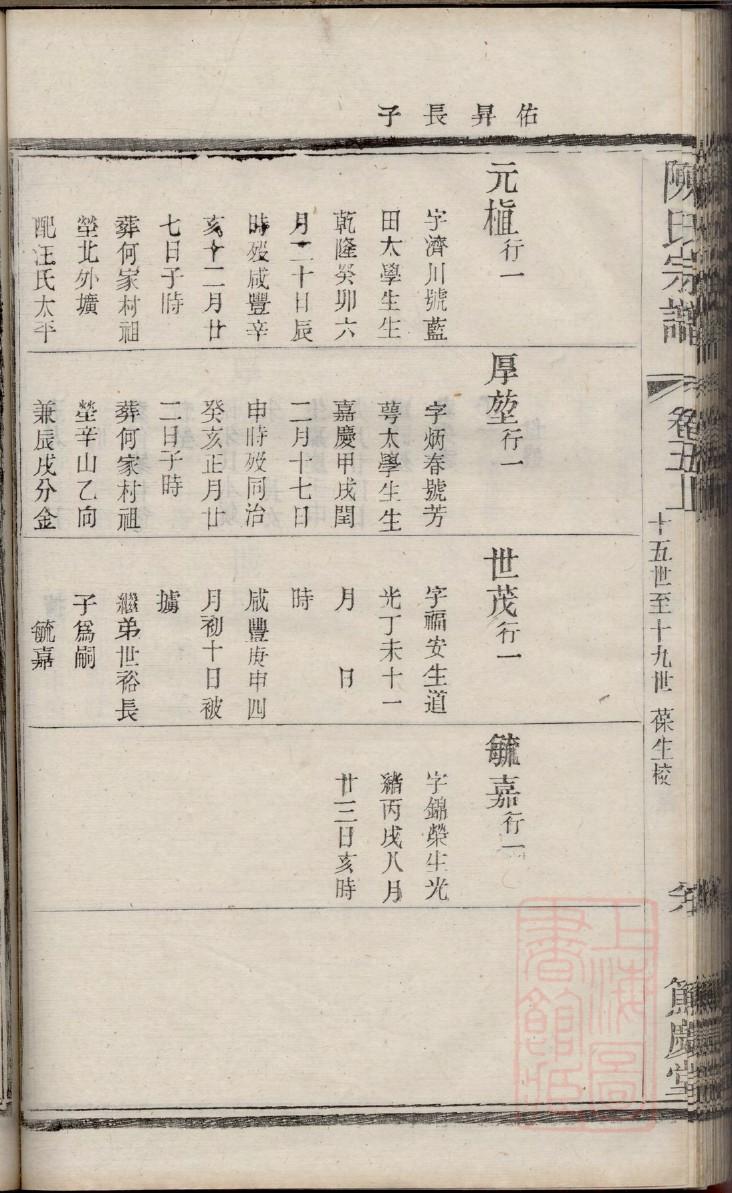 陳氏宗譜
卷五上
十五世至十九世 葆生校
篤慶堂
佑昇長子
元植行一
字濟川號藍
田太學生生
乾隆癸卯六
月二十日辰
時歿咸豐辛
亥十二月廿
七日子時
葬何家村祖
塋北外壙
配汪氏太平
厚堃行一
字炳春號芳
蕚太學生生
嘉慶甲戌閏
二月十七日
申時歿同治
癸亥正月廿
二日子時
葬何家村祖
塋辛山乙向
兼辰戌分金
世茂行一
字福安生道
光丁未十一
月 日
時
咸豐庚申四
月初十日被
擄
繼弟世裕長
子為嗣
毓嘉
毓嘉行一
字錦榮生光
緒丙戌八月
廿三日亥時
上海圖
書館藏